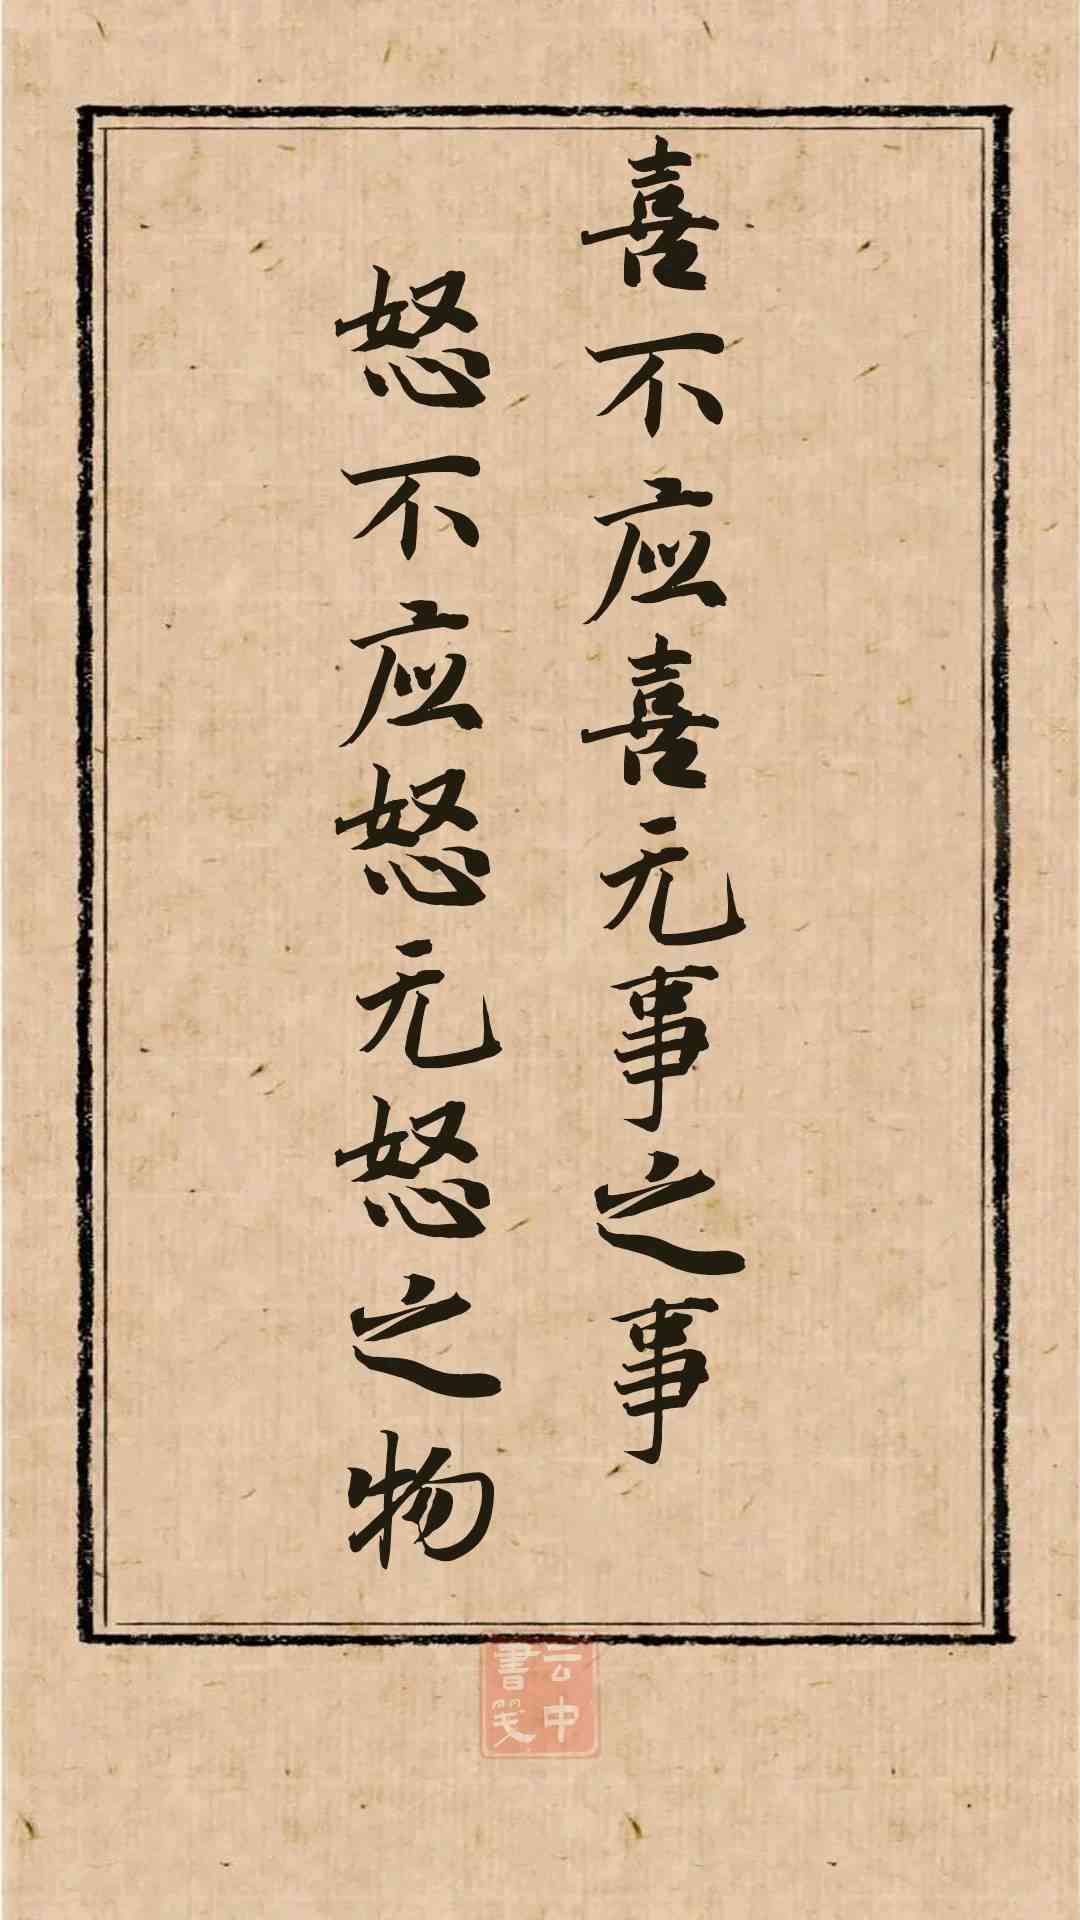 喜不应喜无事之事
怒不应怒无怒之物
云中
書笺